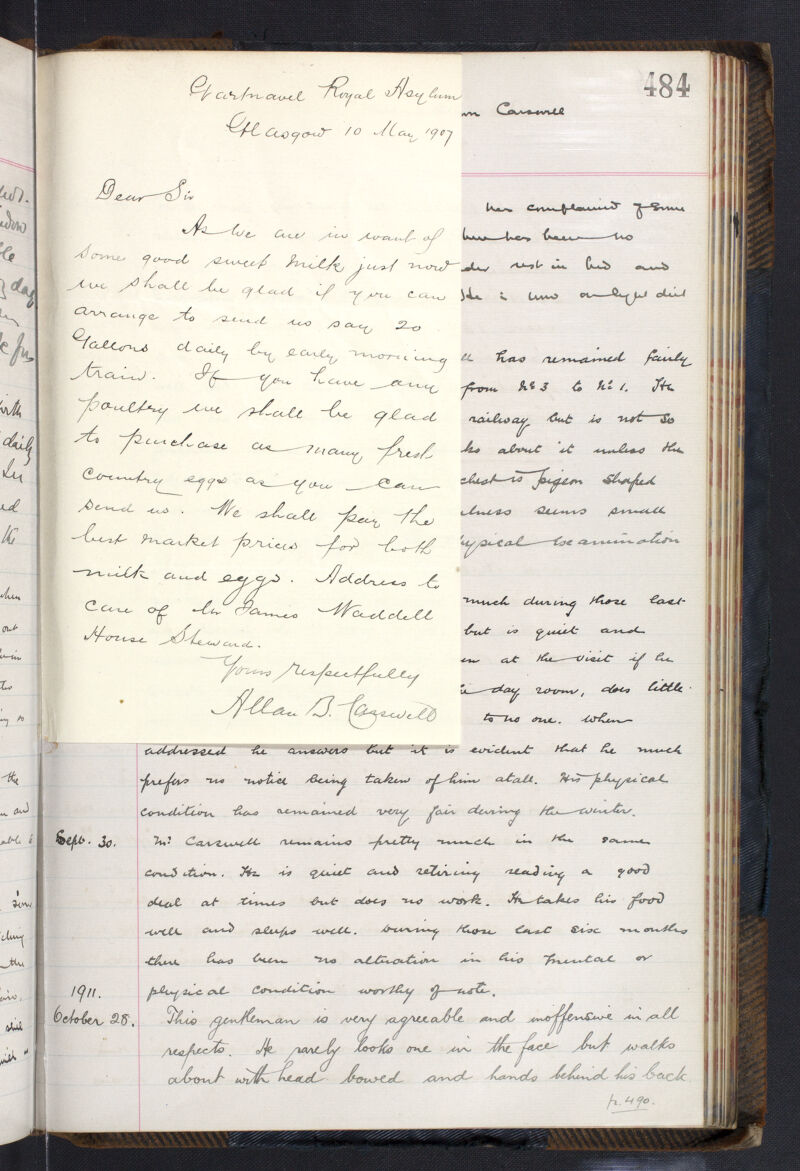 484
Gartnavel Royal Asylum
Glasgow 10 May 1907
Dear Sir
As we are in want of
some good sweet milk just now
we shall be glad if you can
arrange to send us say 20
Gallons daily by early morning
train. If you have any
poultry we shall be glad
to purchase as many fresh
country eggs as you can
send us. We shall pay the
best market prices for both
milk and eggs. Address to
care of Mr James Waddell
House Steward.
Yours respectfully
Allan B. Carswell
Carswell
has complained of some
has been no
rest in bed and
He is now on light diet
has remained fairly
from No 3 to No 1. He
railway but is not so
about it unless the
chest is pigeon shaped
seems small
examination
much during these last
but is quiet and
at the visit if he
day room, does little
to no one. When
addressed he answers but it is evident that he much
prefers no notice being taken of him at all. His physical
condition has remained very fair during the winter.
Sept. 30. Mr Carswell remains pretty much in the same
condition. He is quiet and retiring reading a good
deal at times but does no work. He takes his food
well and sleeps well. During these last six months
there has been no alteration in his mental or
1911. physical condition worthy of note.
October 28. This gentleman is very agreeable and inoffensive in all
respects. He rarely looks one in the face but walks
about with head bowed and hands behind his back
p. 490.